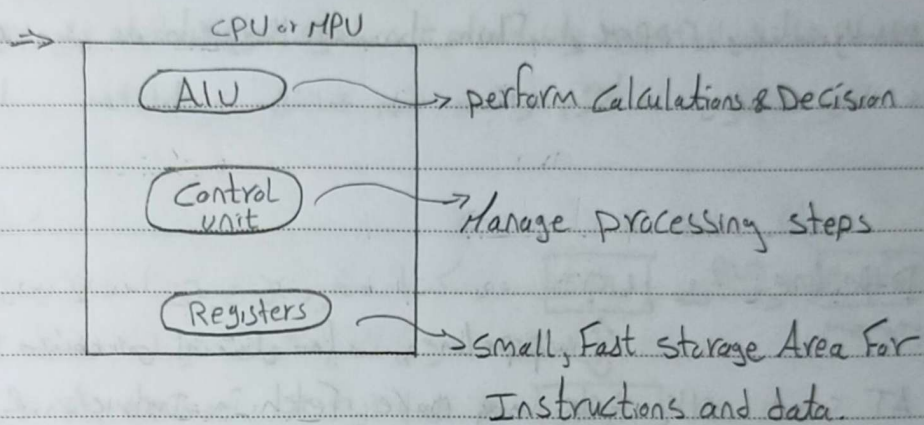 ⇒ CPU or MPU
AIU → perform Calculations & Decision
Control
unit → Manage processing steps
Registers → Small, Fast storage Area For
Instructions and data.